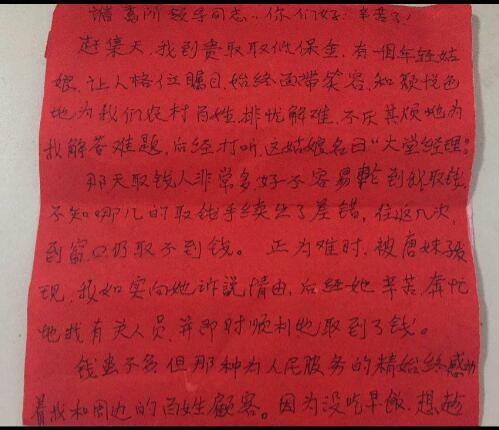 诸葛所领导同志：你们好！辛苦了！
赶集天，我到贵取取低保金，有一個年轻姑
娘，让人格外瞩目，始终面带笑容，和颜悦色
地为我们农村百姓，排忧解难，不厌其烦地为
我解答难题，后经打听，这姑娘名曰“大堂经理”。
那天取钱人非常多，好不容易轮到我取钱，
不知哪儿的取钱手续出了差错，往返几次，
到窗口仍取不到钱。正为难时，被唐妹发
现，我如实向她诉说情由，后经她辛苦奔忙
地找有关人员，并即时顺利地取到了钱。
钱虽不多但那种为人民服务的精始终感动
着我和周边的百姓顾客。因为没吃早饭，想赵